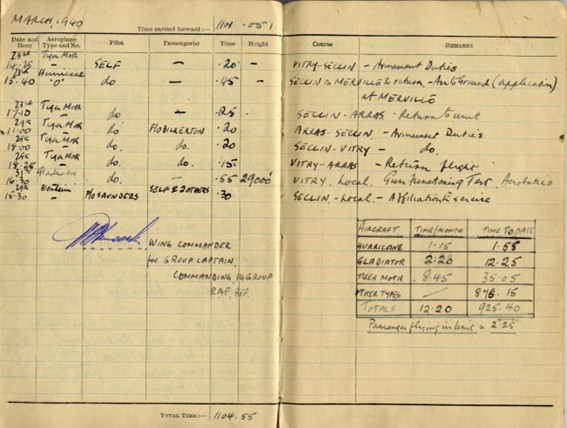 MARCH, 1940
Time carried forward:— 1101 · 05
Date and Hour Aeroplane Type and No. Pilot Passenger(s) Time Height Course REMARKS
23rd 14·25 Tiger Moth SELF — ·20 — VITRY-SECLIN – Armament Duties
15·40 Hurricane "O" do — ·45 — SECLIN to MERVILLE & return – (application)
at MERVILLE
23rd 17·10 Tiger Moth do — ·25 · SECLIN-ARRAS – Return to unit
29th 11·00 Tiger Moth do ·20 ARRAS-SECLIN – Armament Duties
29th 18·00 Tiger Moth do do. ·20 SECLIN-VITRY – do.
29th 18·25 Tiger Moth do. do. ·15 VITRY-ARRAS – Return flight
31st 16·30 Gladiator do. — ·55 29000' VITRY. Local. Gun Functioning Test Aerobatics
29th 15·30 P/O SAUNDERS SELF & 2 OTHERS ·30 SECLIN-Local – Affiliation Exercise
WING COMMANDER
for GROUP CAPTAIN,
COMMANDING 14 GROUP
R.A.F.
AIRCRAFT TIME/MONTH TIME TO DATE
HURRICANE 1·15 1·55
GLADIATOR 2·20 12·25
TIGER MOTH 8·45 35·05
OTHER TYPES — 876·15
TOTALS 12·20 925·40
Passenger flying in Unit = 2·25
TOTAL TIME:— 1104·55